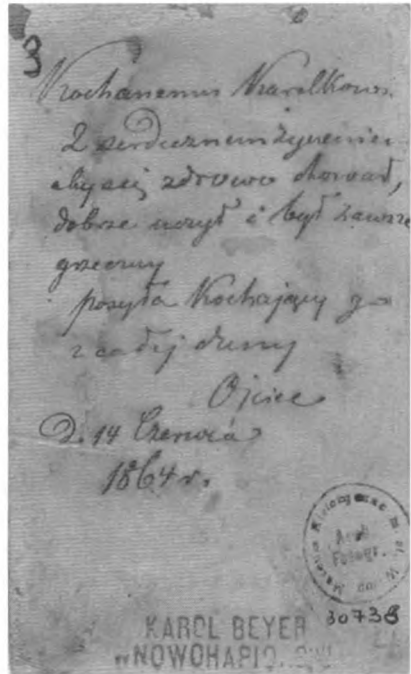 3
Kochanemu Karolkowi
Z serdecznem życzeniem
aby się zdrowo chował,
dobrze uczył i był zawsze
grzeczny
posyła Kochający go
z całej duszy
Ojciec
D. 14 Czerwca
1864 r.
Arch.
Fotogr.
30738
KAROL BEYER